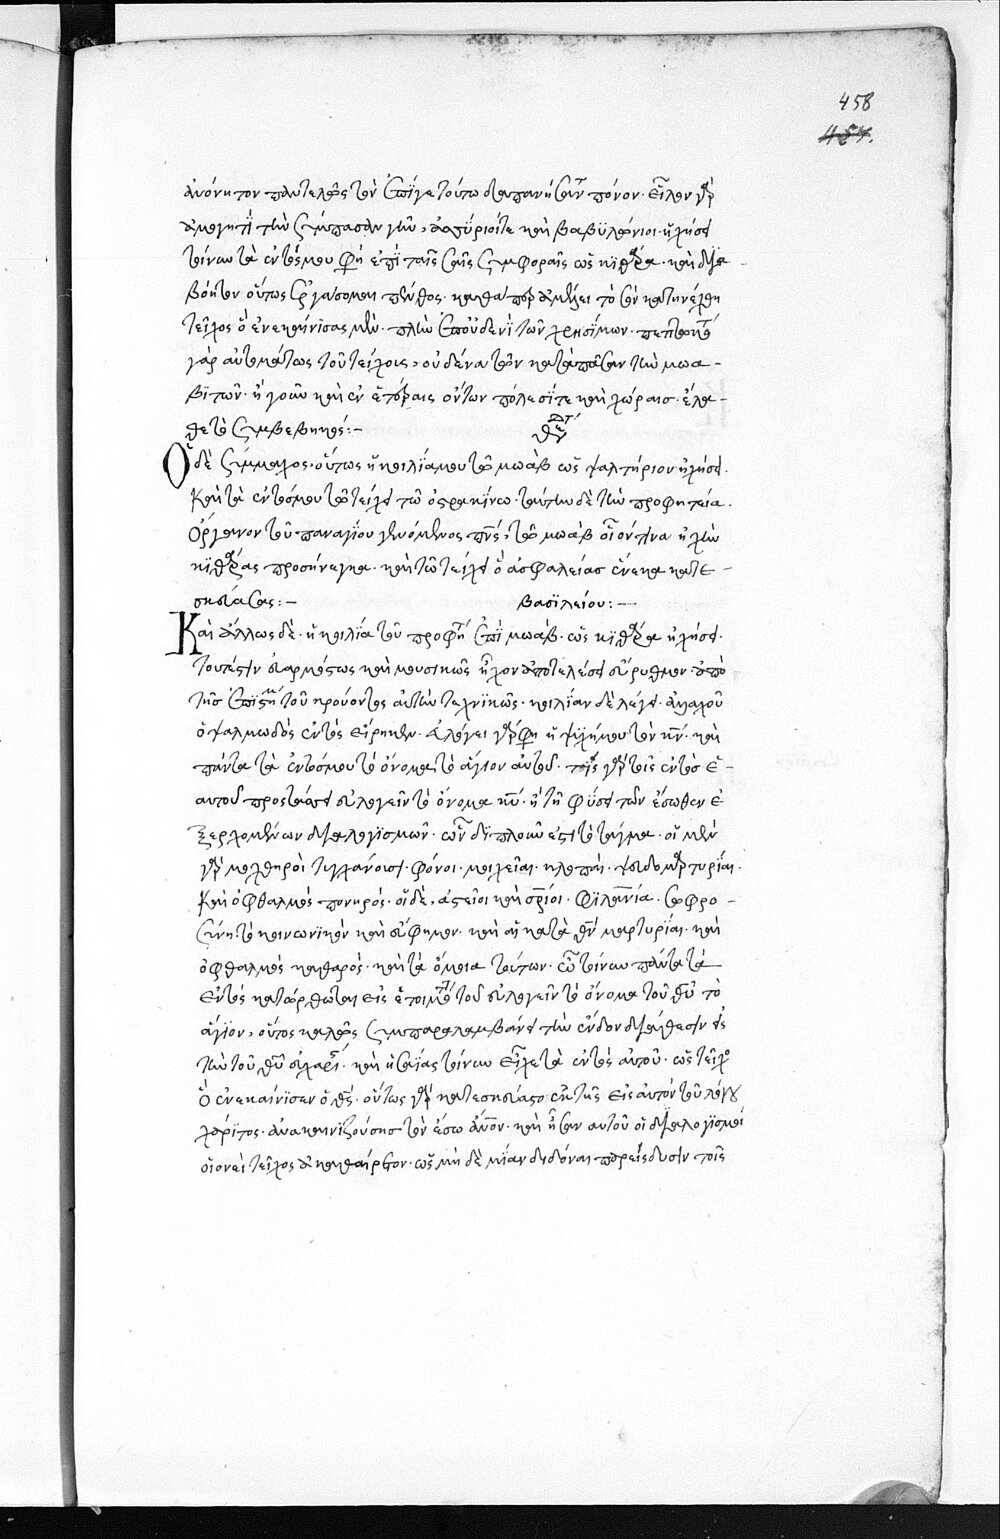 458
454.
ἀνόνητον παντελῶς τὸν ἐπί γε τούτω δαπανήσαντες πόνον· εἷλον γὰρ
ἀμογητὶ τὴν σύμπασαν γῆν, ἀσσύριοί τε καὶ βαβυλώνιοι· ἠχήσει
τοίνυν τὰ ἐντός μου φησὶ ἐπὶ ταῖς σαῖς συμφοραῖς ὡς κιθάρα· καὶ δια
βόητον οὕτως ἐργάσομαι πένθος· καθάπερ ἀμέλει τὸ σὸν κατηνέχθη
τεῖχος ὃ ἐνεκαίνισας μὲν· πλὴν ἐπ' οὐδενὶ τῶν χρησίμων· πεπτωκότος
γὰρ αὐτομάτως τοῦ τείχους, οὐδένα τῶν κατὰ πᾶσαν τὴν μωα-
βιτῶν· ἤγουν καὶ ἐν ἑτέραις ὄντων πόλεσί τε καὶ χώραις· ἔλα-
θε τὸ συμβεβηκός:-
Ὁ δὲ σύμμαχος· οὕτως ἡ κοιλία μου τῷ μωὰβ ὡς ψαλτήριον ἠχήσει.
Καὶ τὰ ἐντός μου τῷ τείχει τῷ ὀστρακίνῳ· ταύτην δὲ τὴν προφητεία.
ὄργανον τοῦ παναγίου γενόμενος πνς, τῷ μωὰβ οἱονεί τινα ἠχὼ
κιθάρας προσήνεγκα· καὶ τῷ τείχει ὃ ἀσφαλείας ἕνεκα κατε-
σκεύασας:-
βασιλείου:-
Καὶ ἄλλως δὲ· ἡ κοιλία τοῦ προφήτου ἐπὶ μωὰβ· ὡς κιθάρα ἠχήσει·
τουτέστιν ἐναρμόστως καὶ μουσικῶς ἦχον ἀποτελέσει εὔρυθμον ἀπὸ
τῆς ἐπιστήμης τοῦ κρούοντος αὐτὴν τεχνικῶς· κοιλίαν δὲ λέγει· ἀλλαχοῦ
ὁ ψαλμωδὸς ἐντὸς εἴρηκεν· εὐλόγει γάρ φησι ἡ ψυχή μου τὸν κν· καὶ
πάντα τὰ ἐντός μου τὸ ὄνομα τὸ ἅγιον αὐτοῦ· τοῖς γὰρ τοῖς ἐντὸς ἑ-
αυτοῦ προστάσσει εὐλογεῖν τὸ ὄνομα κυ· ἢ τῇ φύσει τῶν ἔσωθεν ἐ
ξερχομένων διαλογισμῶν· ὧν διπλοῦν ἐστι τὸ τάγμα· οἱ μὲν
γὰρ μοχθηροὶ τυγχάνουσι· φόνοι· μοιχεῖαι· κλοπαί· ψευδομαρτυρίαι·
Καὶ ὀφθαλμὸς πονηρός· οἱ δὲ, ἀστεῖοι καὶ σπριοι· φιλανία· σωφρο-
σύνη· τὸ κοινωνικὸν καὶ εὔφημον· καὶ αἱ κατὰ θν μαρτυρίαι· καὶ
ὀφθαλμὸς καθαρός· καὶ τὰ ὅμοια τούτων· ᾧ τοίνυν πάντα τὰ
ἐντὸς κατώρθωται εἰς ἑτοιμότητα τοῦ εὐλογεῖν τὸ ὄνομα τοῦ θυ τὸ
ἅγιον, οὗτος καλῶς συμπαραλαμβάνει τὴν ἔνδον διάθεσιν εἰς
τὴν τοῦ θυ εὐχαριστίαν· καὶ ἡσαΐας τοίνυν εἶχε τὰ ἐντὸς αὐτοῦ· ὡς τεῖχος
ὃ ἐνεκαίνισεν ὁ θς· οὕτως γὰρ κατεσκεύαστο ἐκ τῆς εἰς αὐτὸν τοῦ λόγου
χάριτος· ἀνακαινιζούσης τὸν ἔσω ἀνον· καὶ ἦσαν αὐτοῦ οἱ διαλογισμοὶ
οἱονεὶ τεῖχος ἀκαθαίρετον· ὡς μὴ δὲ μίαν διδόναι παρείσδυσιν τοῖς